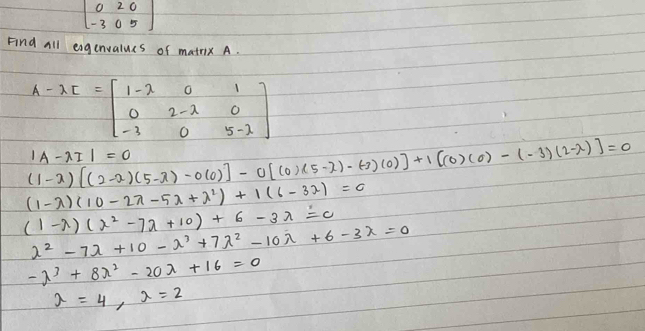 0 2 0
-3 0 5
Find all eigenvalues of matrix A.
A - λI = [ 1-λ 0 1
0 2-λ 0
-3 0 5-λ ]
|A - λI| = 0
(1-λ)[(2-λ)(5-λ) - 0(0)] - 0[(0)(5-λ) - (-3)(0)] + 1[(0)(0) - (-3)(2-λ)] = 0
(1-λ)(10 - 2λ - 5λ + λ²) + 1(6 - 3λ) = 0
(1-λ)(λ² - 7λ + 10) + 6 - 3λ = 0
λ² - 7λ + 10 - λ³ + 7λ² - 10λ + 6 - 3λ = 0
-λ³ + 8λ² - 20λ + 16 = 0
λ = 4, λ = 2